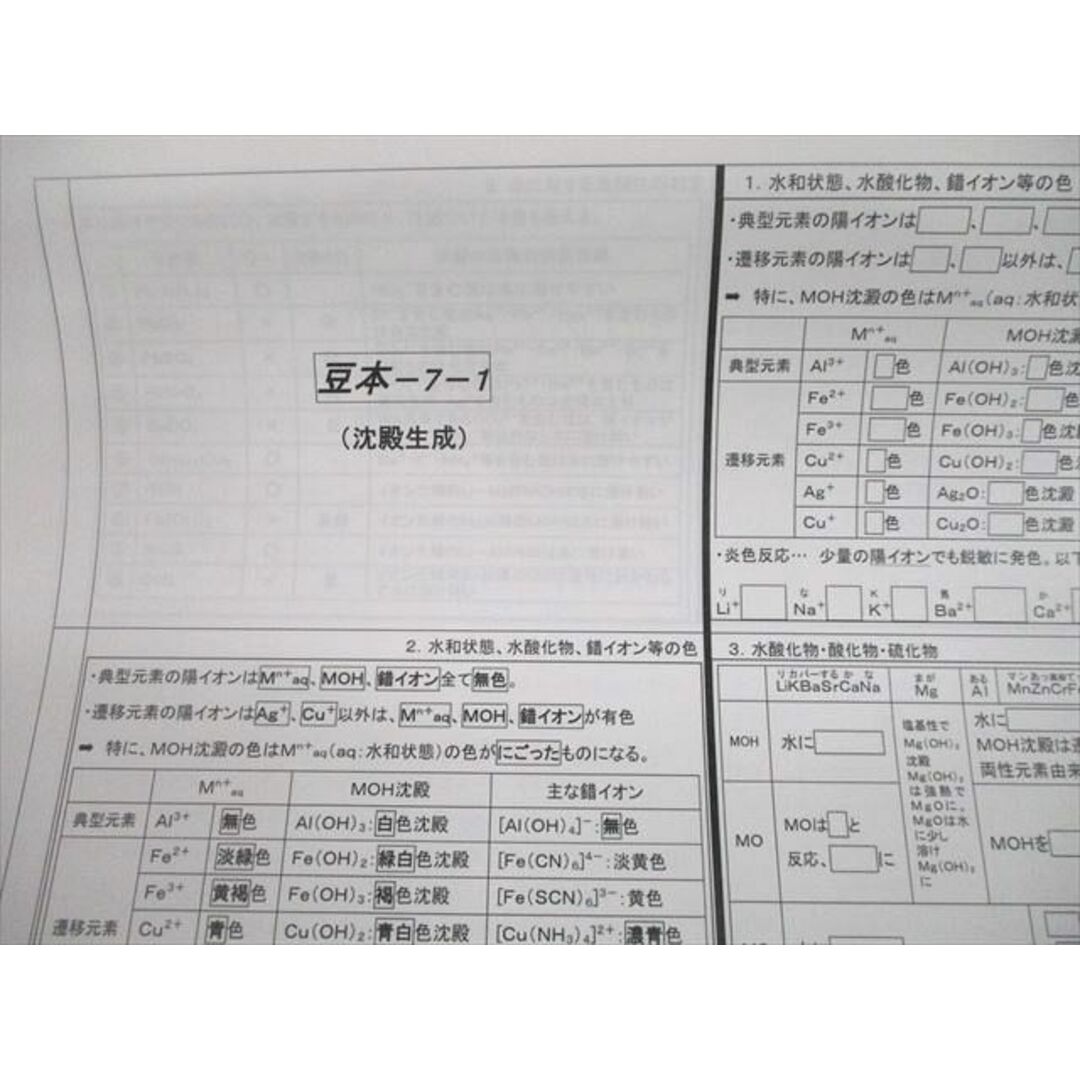 豆本－7－1
（沈殿生成）
2. 水和状態、水酸化物、錯イオン等の色
・典型元素の陽イオンはMⁿ⁺aq、MOH、錯イオン全て無色。
・遷移元素の陽イオンはAg⁺、Cu⁺以外は、Mⁿ⁺aq、MOH、錯イオンが有色
➡ 特に、MOH沈澱の色はMⁿ⁺aq(aq:水和状態)の色がにごったものになる。
Mⁿ⁺aq MOH沈殿 主な錯イオン
典型元素 Al³⁺ 無色 Al(OH)₃:白色沈殿 [Al(OH)₄]⁻:無色
Fe²⁺ 淡緑色 Fe(OH)₂:緑白色沈殿 [Fe(CN)₆]⁴⁻:淡黄色
Fe³⁺ 黄褐色 Fe(OH)₃:褐色沈殿 [Fe(SCN)₆]³⁻:黄色
遷移元素 Cu²⁺ 青色 Cu(OH)₂:青白色沈殿 [Cu(NH₃)₄]²⁺:濃青色
1. 水和状態、水酸化物、錯イオン等の色
・典型元素の陽イオンは 、 、
・遷移元素の陽イオンは 、 以外は、
➡ 特に、MOH沈澱の色はMⁿ⁺aq(aq:水和状
Mⁿ⁺aq MOH沈澱
典型元素 Al³⁺ 色 Al(OH)₃: 色沈
Fe²⁺ 色 Fe(OH)₂: 色
Fe³⁺ 色 Fe(OH)₃: 色沈
遷移元素 Cu²⁺ 色 Cu(OH)₂: 色
Ag⁺ 色 Ag₂O: 色沈澱
Cu⁺ 色 Cu₂O: 色沈澱
・炎色反応… 少量の陽イオンでも鋭敏に発色。以下
リ な K 馬 か
Li⁺ Na⁺ K⁺ Ba²⁺ Ca²⁺
3. 水酸化物・酸化物・硫化物
リカバーするかな まが ある
LiKBaSrCaNa Mg Al MnZnCrF
MOH 水に
塩基性で
Mg(OH)₂
沈殿
Mg(OH)₂
は強熱で
MgOに。
MgOは水
に少し
溶け
Mg(OH)₂
に
水に
MOH沈殿は
両性元素由来
MO MOは と
反応、 に
MOHを